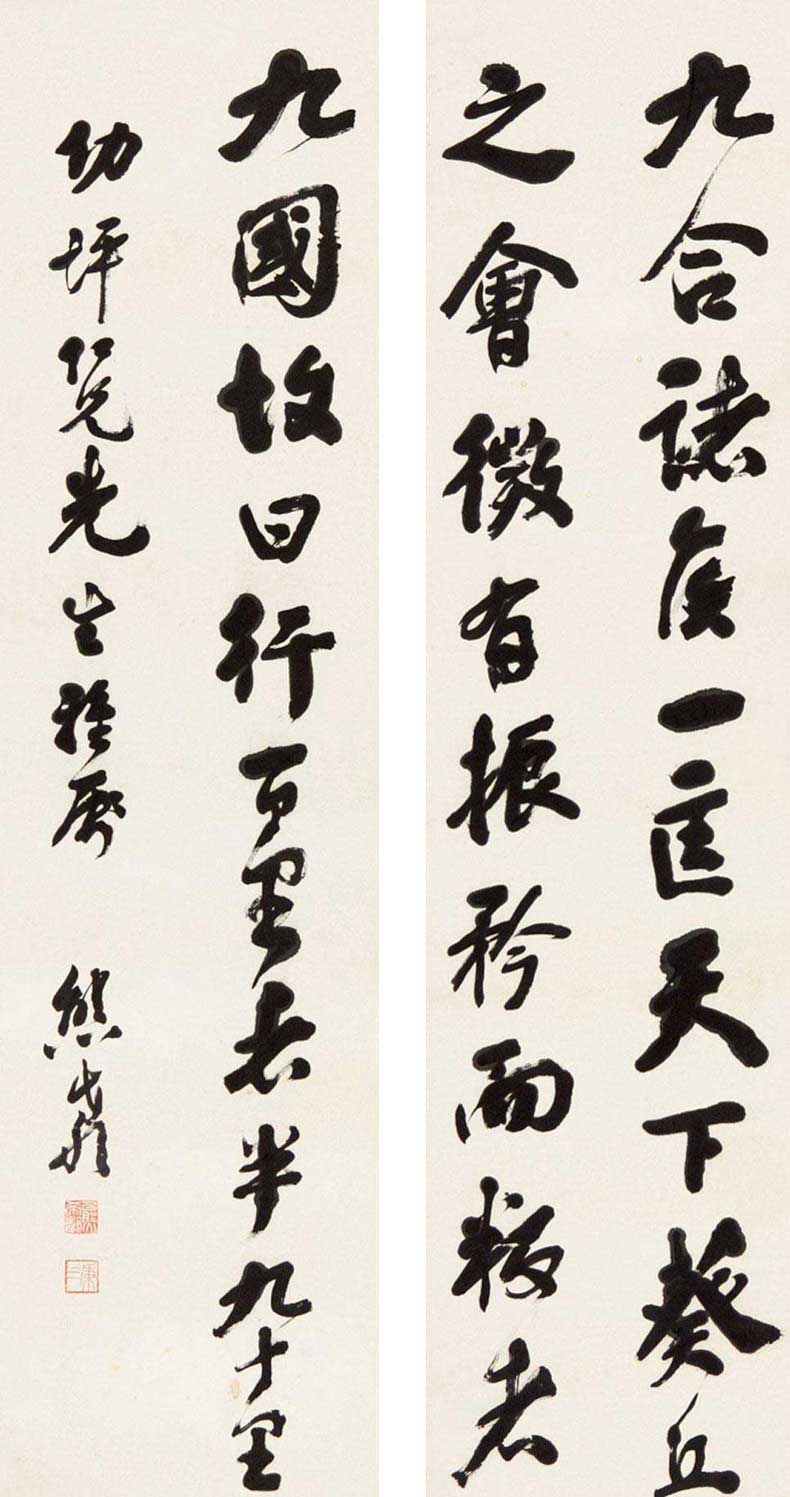 九合諸侯一匡天下葵丘
之會微有振矜而叛者
九國故曰行百里者半九十里
坪仁兄先生雅屬 熊希齡
秉三